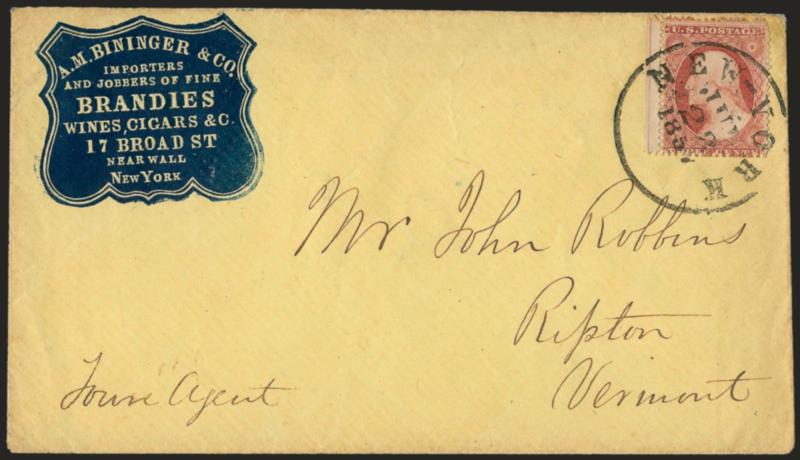 A.M. BININGER & CO.
IMPORTERS
AND JOBBERS OF FINE
BRANDIES
WINES, CIGARS & C.
17 BROAD ST
NEAR WALL
NEW YORK
U.S. POSTAGE
CENTS
NEW-YORK
185
Mr John Robbins
Ripton
Vermont
Agent